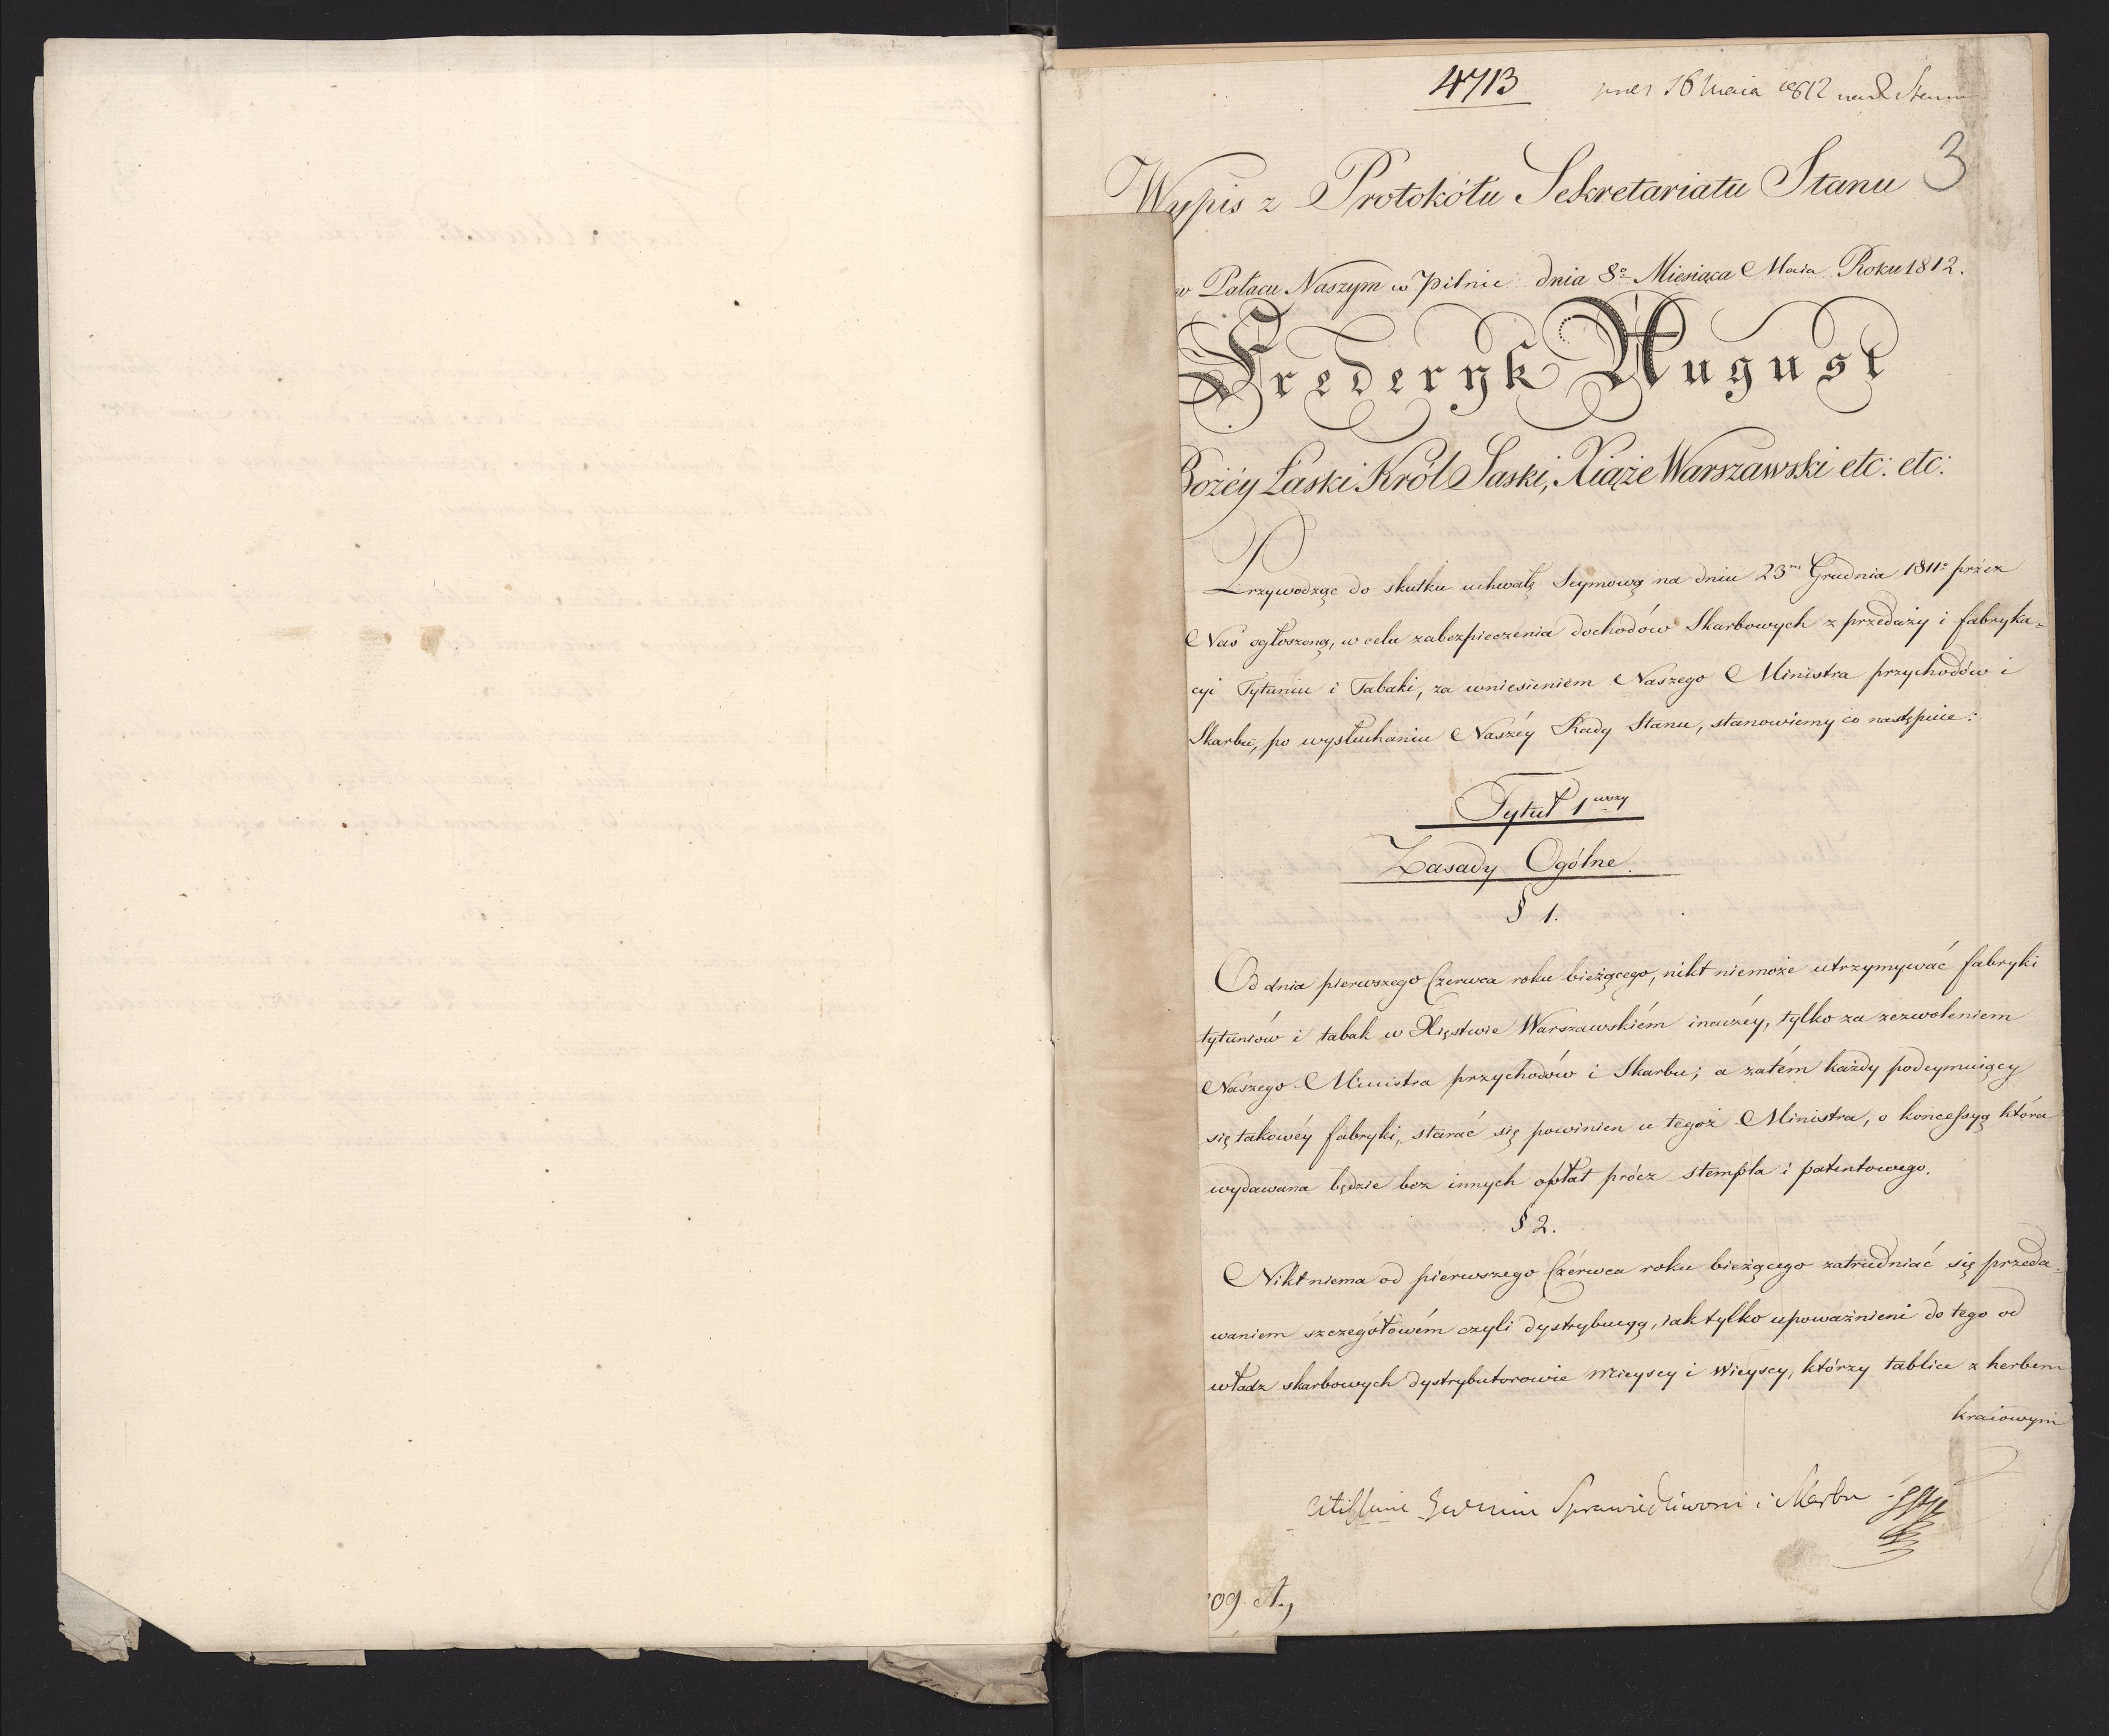 4713
16 Maia 1812
3
Wypis z Protokółu Sekretariatu Stanu
w Pałacu Naszym w Pilnic dnia 8º Miesiąca Maia Roku 1812.
Frederyk August
Bożéy Łaski Król Saski, Xiąże Warszawski etc: etc:
Przywodząc do skutku uchwałę Seymową na dniu 23m Grudnia 1811º przez
Nas ogłoszoną, w celu zabezpieczenia dochodów Skarbowych z przedaży i fabryka=
cyi Tytuniu i Tabaki, za wniesieniem Naszego Ministra przychodów i
Skarbu, po wysłuchaniu Naszéy Rady Stanu, stanowiemy co następuie:
Tytuł 1wszy
Zasady Ogólne.
§ 1.
Od dnia pierwszego Czerwca roku bieżącego, nikt niemoże utrzymywać fabryki
tytuniów i tabak w Xięstwie Warszawskiém inaczéy, tylko za zezwoleniem
Naszego Ministra przychodów i Skarbu; a zatém każdy podeymuiący
się takowéy fabryki, starać się powinien u tegoż Ministra, o koncessyą która
wydawana będzie bez innych opłat prócz stempla i patentowego.
§ 2.
Nikt niema od pierwszego Czérwca roku bieżącego zatrudniać się przeda=
waniem szczegółowém czyli dystrybucyą, iak tylko upoważnieni do tego od
władz skarbowych dystrybutorowie mieyscy i wieyscy, którzy tablice z herbem
kraiowym
Sprawiedliwosci i Skarbu
09 A.,